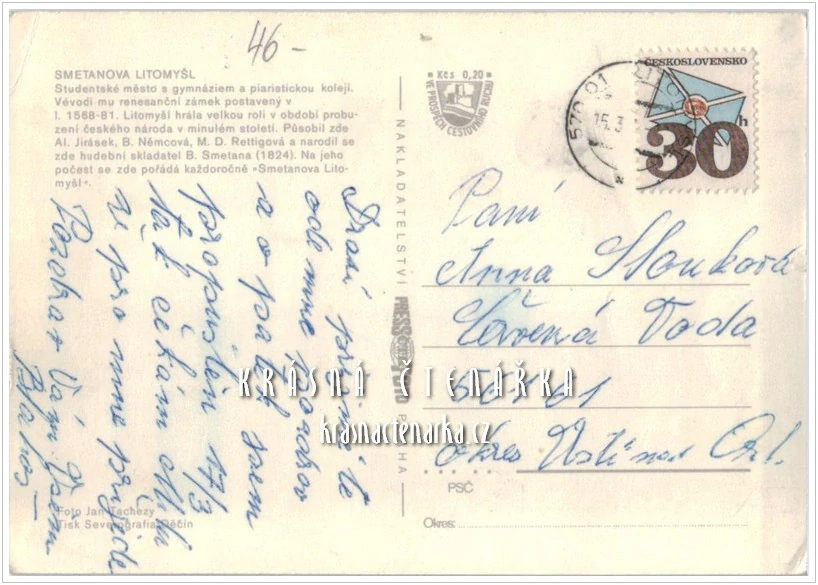 46 -
SMETANOVA LITOMYŠL
Studentské město s gymnáziem a piaristickou kolejí.
Vévodí mu renesanční zámek postavený v
l. 1568-81. Litomyšl hrála velkou roli v období probu-
zení českého národa v minulém století. Působil zde
Al. Jirásek, B. Němcová, M. D. Rettigová a narodil se
zde hudební skladatel B. Smetana (1824). Na jeho
počest se zde pořádá každoročně »Smetanova Lito-
myšl«.
Kčs 0,20
VE PROSPĚCH CESTOVNÍHO RUCHU
ČESKOSLOVENSKO
30 h
570 01
15.3
NAKLADATELSTVÍ PRESSFOTO PRAHA
Drazí přijměte
ode mne pozdrav
a opět jsem
propuštěn 17/3
tak čekám
že pro mne přijede
Pozdrav Vám všem
Paní
Anna
Červená Voda
okres Ústí nad Orl.
KRÁSNÁ ČTENÁŘKA
krasnactenarka.cz
PSČ
Okres:
Foto Jan Tachezy
Tisk Severografia Děčín